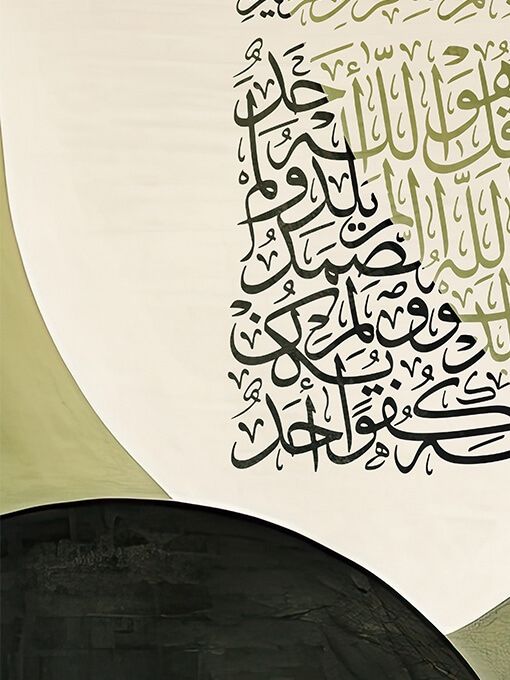 هُوَ اللَّهُ أَحَدٌ
اللَّهُ الصَّمَدُ لَمْ يَلِدْ وَلَمْ
وَلَمْ يَكُنْ
كُفُوًا أَحَدٌ